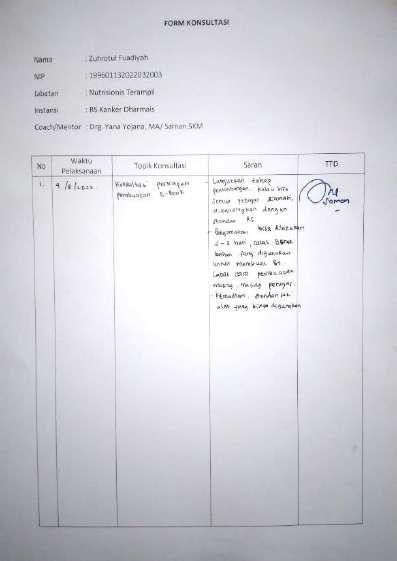 FORM KONSULTASI
Nama : Zuhrotul Fuadiyah
NIP : 199601132022032003
Jabatan : Nutrisionis Terampil
Instansi : RS Kanker Dharmais
Coach/Mentor : Drg. Yana Yojana, MA/ Saman SKM
No Waktu Pelaksanaan Topik Konsultasi Saran TTD
1. 9 /8/2022 Konsultasi persiapan
pembuatan E-Book
- Lanjutkan tahap
penimbangan. Kalau bisa
sesuai resep
dibandingkan dengan
standar RS
- bisa dilakukan
2-3 hari, catat
bahan yang digunakan
untuk membuat
Catat cara pembuatan
masing-masing
- Kemudian, standar
alat yang biasa digunakan
Saman